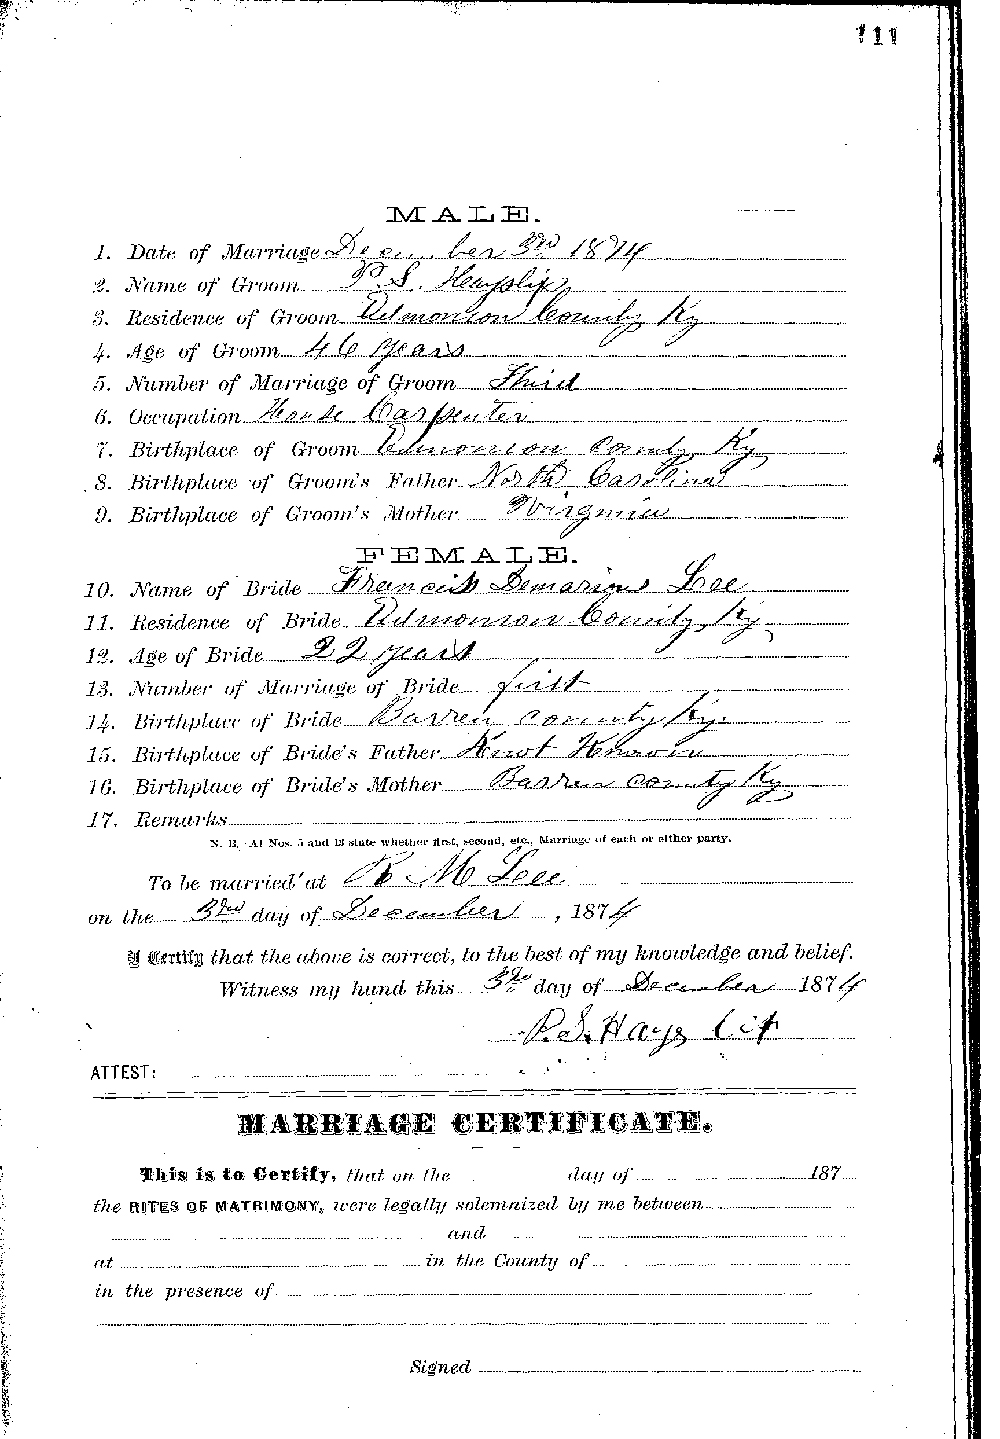 111
MALE.
1. Date of Marriage December 3rd 1874
2. Name of Groom P. S. Hayslip
3. Residence of Groom Edmonson County Ky
4. Age of Groom 46 years
5. Number of Marriage of Groom Third
6. Occupation House Carpenter
7. Birthplace of Groom Edmonson County Ky
8. Birthplace of Groom's Father North Carolina
9. Birthplace of Groom's Mother Virginia
FEMALE.
10. Name of Bride Francis Demarius Lee
11. Residence of Bride Edmonson County, Ky
12. Age of Bride 22 years
13. Number of Marriage of Bride first
14. Birthplace of Bride Barren county Ky.
15. Birthplace of Bride's Father Knot Known
16. Birthplace of Bride's Mother Barren county Ky
17. Remarks
N. B. At Nos. 5 and 13 state whether first, second, etc., Marriage of each or either party.
To be married at R M Lee
on the 3rd day of December, 1874
I Certify that the above is correct, to the best of my knowledge and belief.
Witness my hand this 3rd day of December 1874
P. S. Hays lip
ATTEST:
MARRIAGE CERTIFICATE.
This is to Certify, that on the day of 187
the RITES OF MATRIMONY, were legally solemnized by me between
and
at in the County of
in the presence of
Signed